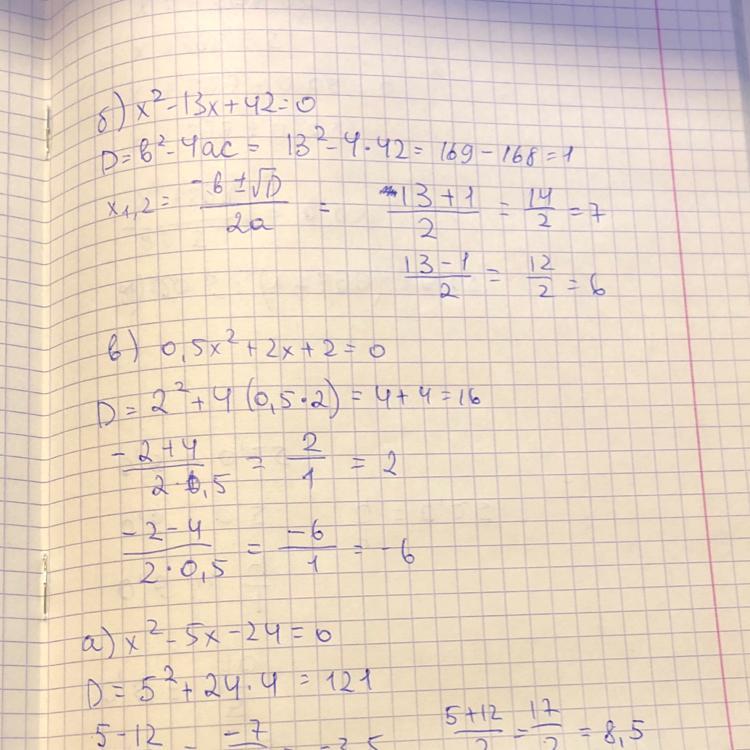 б) x² - 13x + 42 = 0
D = b² - 4ac = 13² - 4·42 = 169 - 168 = 1
x₁,₂ = (-b ± √D)/(2a) = (13 + 1)/2 = 14/2 = 7
(13 - 1)/2 = 12/2 = 6
в) 0,5x² + 2x + 2 = 0
D = 2² + 4(0,5·2) = 4 + 4 = 16
(-2 + 4)/(2·0,5) = 2/1 = 2
(-2 - 4)/(2·0,5) = -6/1 = -6
а) x² - 5x - 24 = 0
D = 5² + 24·4 = 121
(5 - 12)/ = -7/ = -3,5 (5 + 12)/2 = 17/2 = 8,5